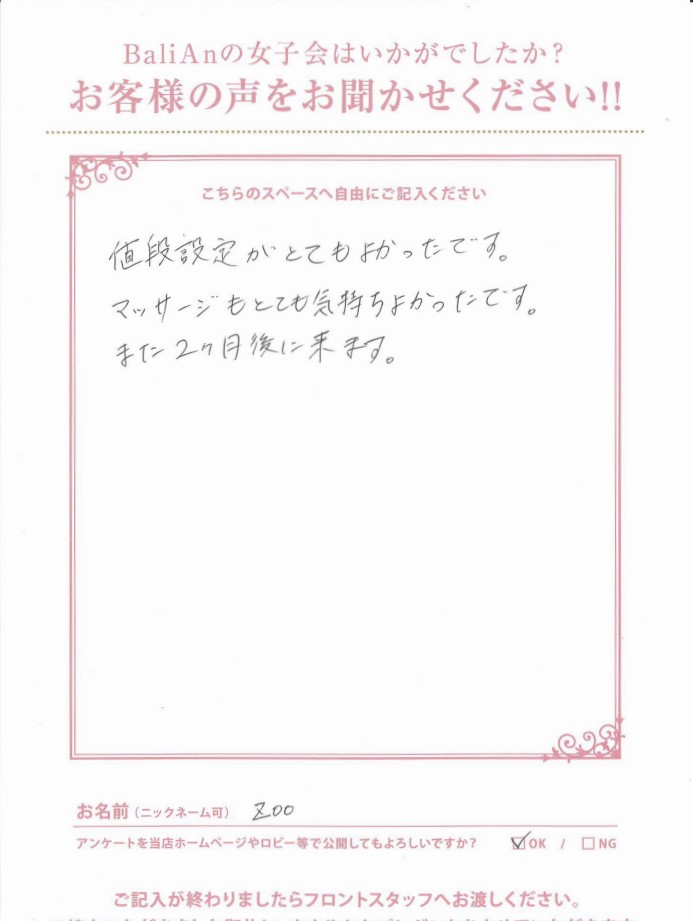 BaliAnの女子会はいかがでしたか?
お客様の声をお聞かせください!!
こちらのスペースへ自由にご記入ください
値段設定がとてもよかったです。
マッサージもとても気持ちよかったです。
また2ヶ月後に来ます。
お名前(ニックネーム可) Zoo
アンケートを当店ホームページやロビー等で公開してもよろしいですか? ☑OK / □NG
ご記入が終わりましたらフロントスタッフへお渡しください。